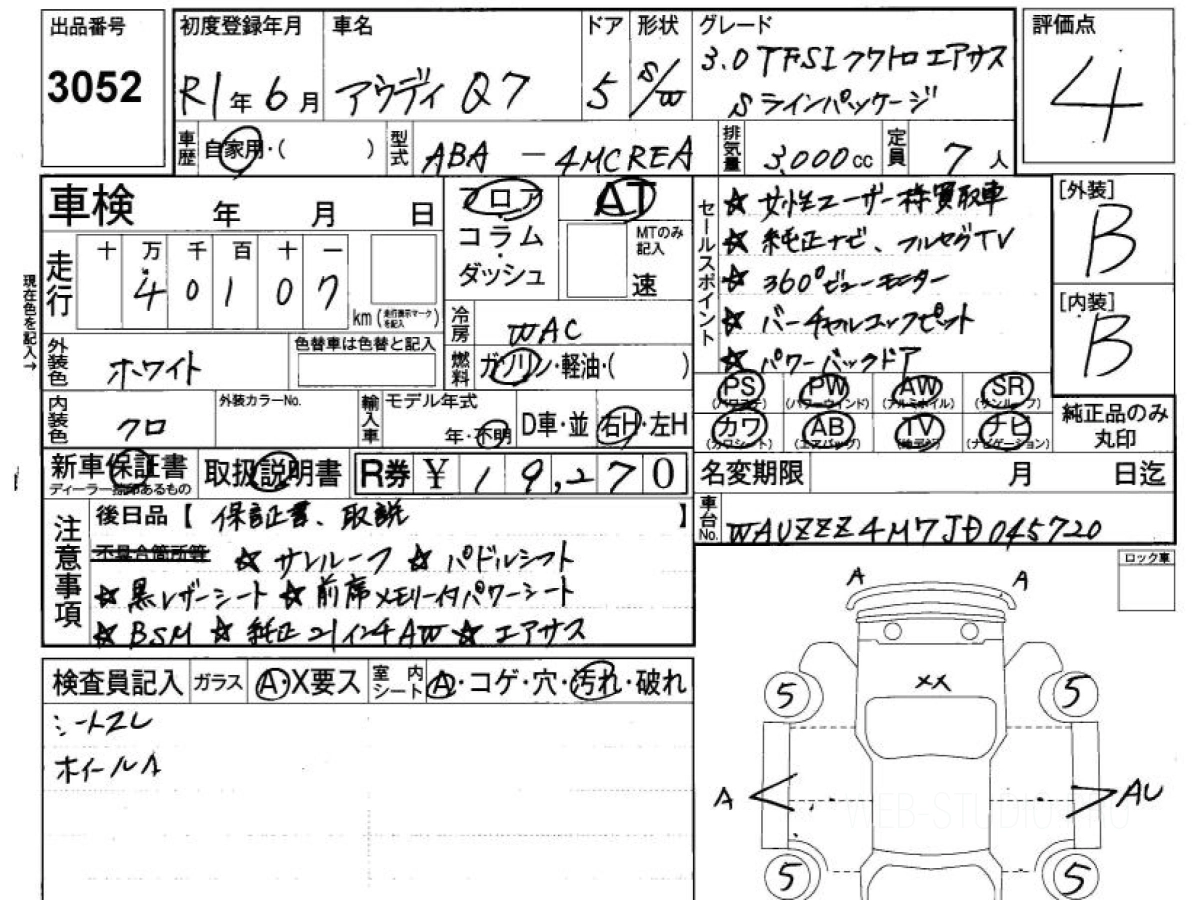 出品番号
3052
初度登録年月
R1年6月
車名
アウディ Q7
ドア
5
形状
S/W
グレード
3.0 TFSI クワトロ エアサス
Sラインパッケージ
評価点
4
車歴
自家用・( )
型式
ABA - 4MCREA
排気量
3,000cc
定員
7人
車検 年 月 日
フロア
コラム
ダッシュ
AT
MTのみ記入
速
セールスポイント
☆ 女性ユーザー様買取車
☆ 純正ナビ、フルセグTV
☆ 360°ビューモニター
☆ バーチャルコックピット
☆ パワーバックドア
[外装]
B
[内装]
B
現在色を記入→
走行
十 万 千 百 十 一
4 0 1 0 7
km (走行表示マークを記入)
冷房
WAC
燃料
ガソリン・軽油・( )
外装色
ホワイト
色替車は色替と記入
内装色
クロ
外装カラーNo.
輸入車
モデル年式
年・不明
D車・並
右H・左H
PS (パワステ)
PW (パワーウインド)
AW (アルミホイル)
SR (サンルーフ)
カワ (カワシート)
AB (エアバッグ)
TV (地デジ)
ナビ (ナビゲーション)
純正品のみ
丸印
新車保証書
ディーラー捺印あるもの
取扱説明書
R券 ¥ 19,270
名変期限 月 日迄
車台No.
WAUZZZ4M7JD045720
注意事項
後日品【 保証書、取説 】
不具合箇所等 ☆ サンルーフ ☆ パドルシフト
☆ 黒レザーシート ☆ 前席メモリー付パワーシート
☆ BSM ☆ 純正21インチAW ☆ エアサス
ロック車
検査員記入
ガラス
A・X要ス
室内シート
A・コゲ・穴・汚れ・破れ
シートスレ
ホイールA
A A
XX
5 5
A AU
5 5
WEB-STUDIO.PRO